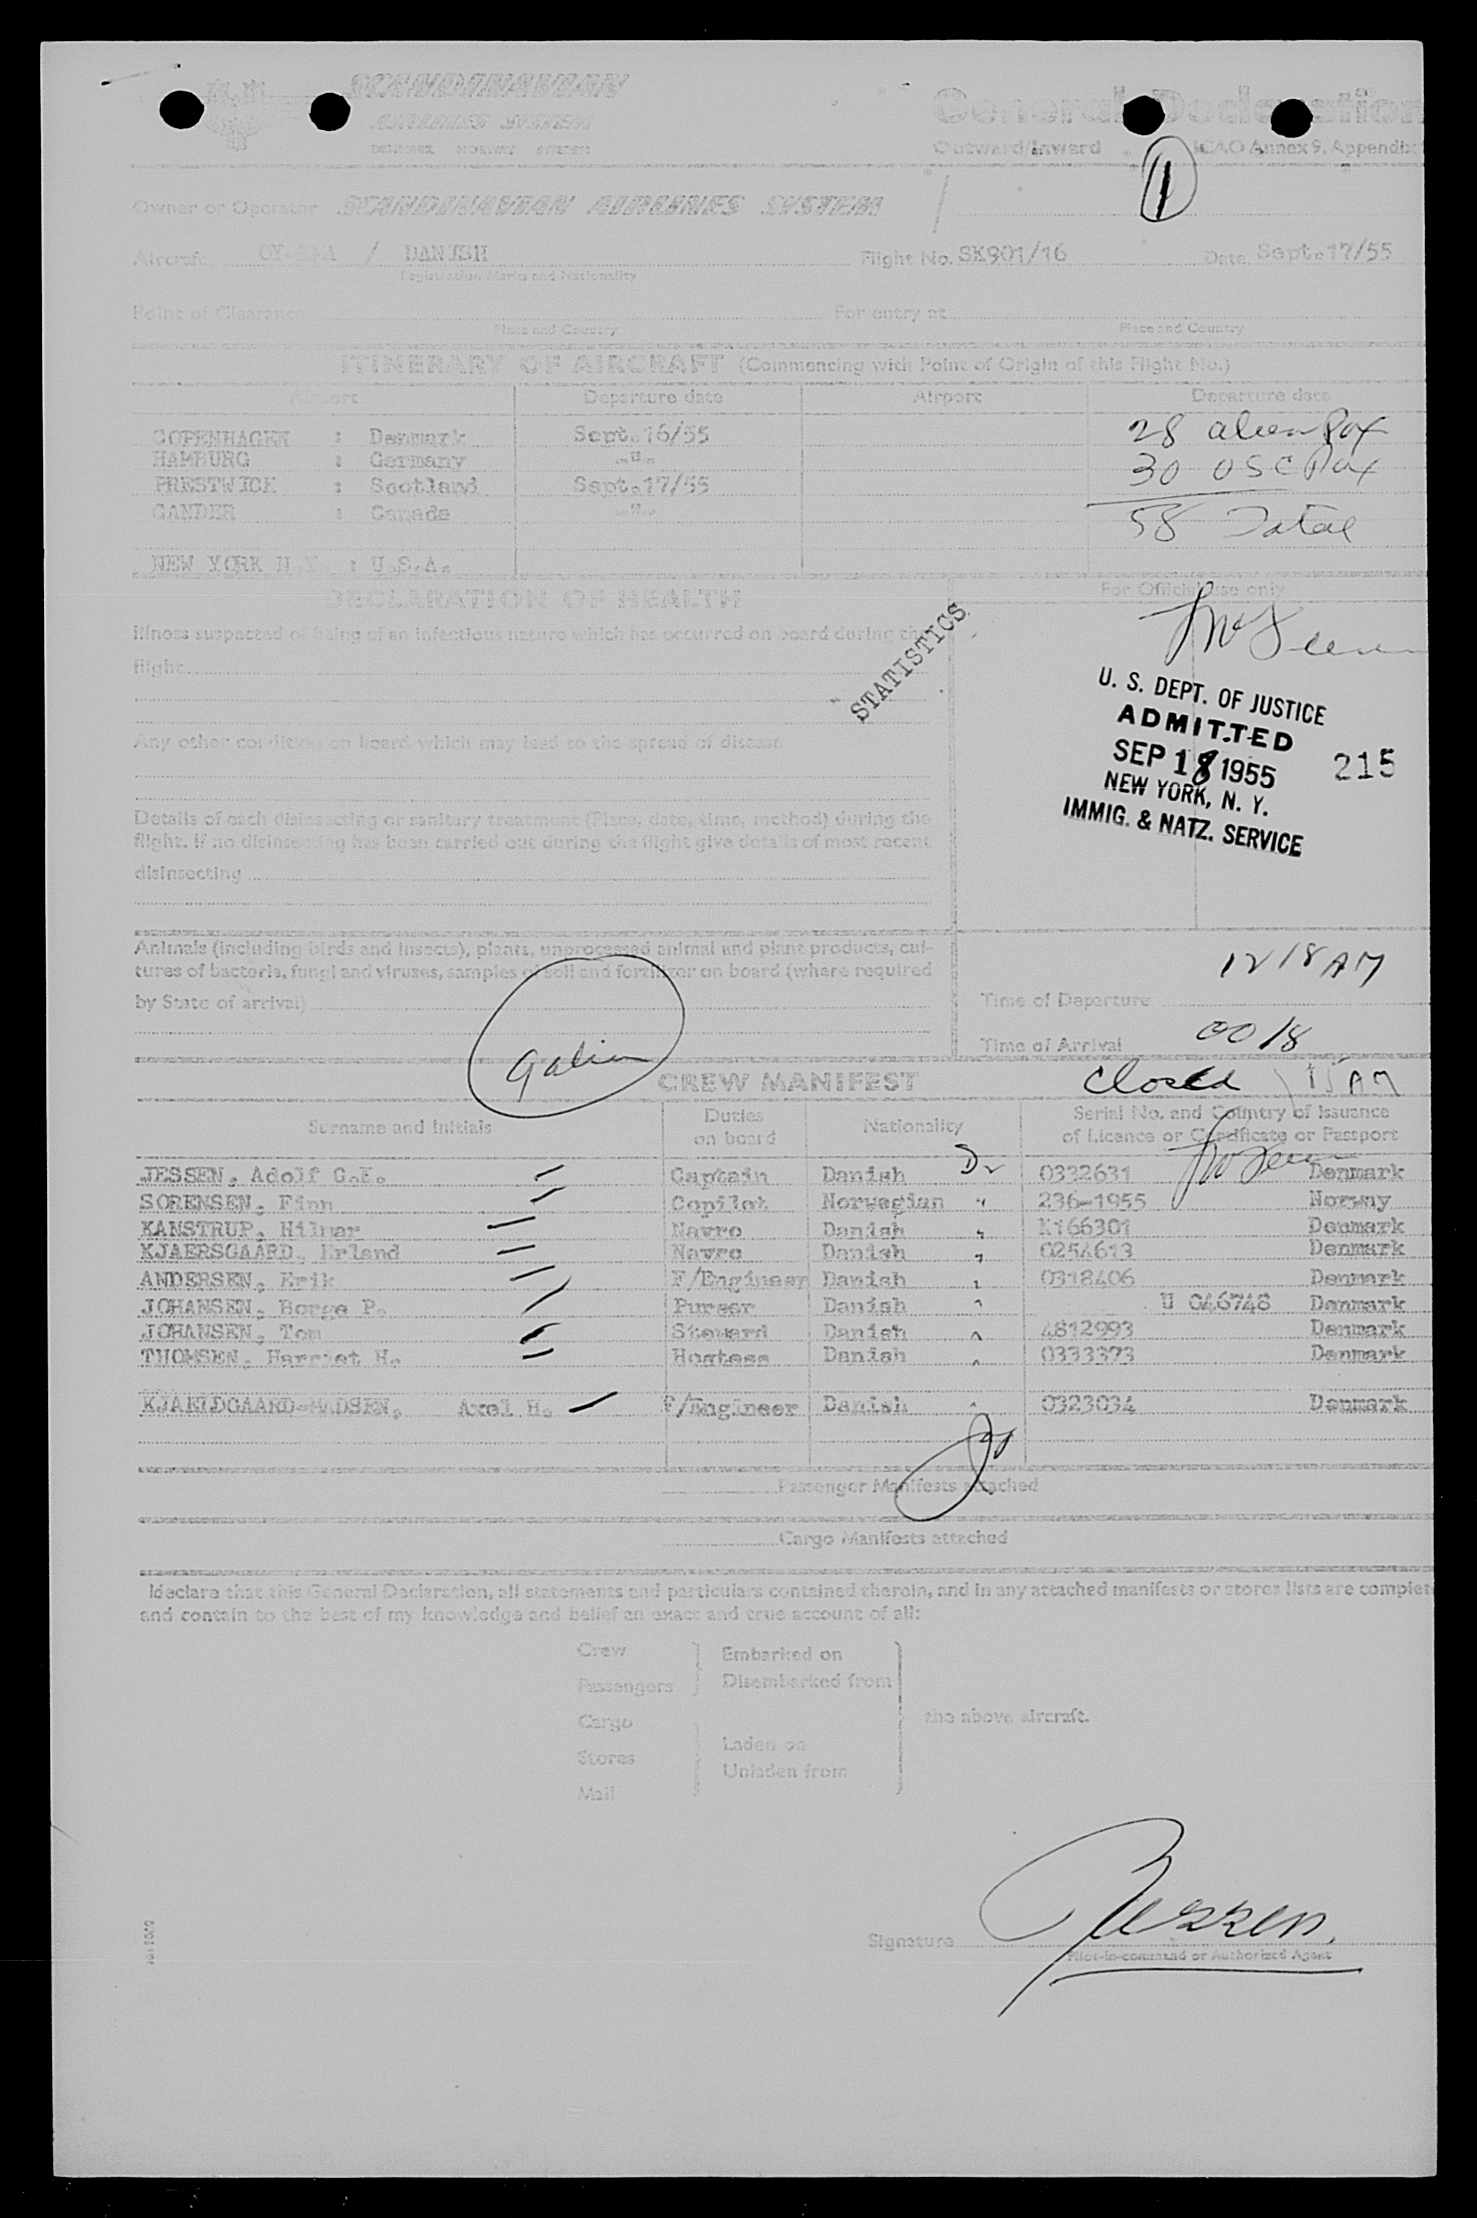 SCANDINAVIAN
AIRLINES SYSTEM
DENMARK NORWAY SWEDEN
General Declaration
Outward/Inward
ICAO Annex 9, Appendix
1
Owner or Operator SCANDINAVIAN AIRLINES SYSTEM
Aircraft / DANISH
Registration Marks and Nationality
Flight No. SK901/16
Date Sept. 17/55
Point of Clearance
Place and Country
For entry at
Place and Country
ITINERARY OF AIRCRAFT (Commencing with Point of Origin of this Flight No.)
Airport Departure date Airport Departure date
COPENHAGEN : Denmark Sept. 16/55
HAMBURG : Germany -"-
PRESTWICK : Scotland Sept. 17/55
GANDER : Canada -"-
NEW YORK N.Y. : U.S.A.
28 alien Pax
30 USC Pax
58 Total
DECLARATION OF HEALTH
Illness suspected of being of an infectious nature which has occurred on board during the
flight
Any other condition on board which may lead to the spread of disease
Details of each disinsecting or sanitary treatment (Place, date, time, method) during the
flight. If no disinsecting has been carried out during the flight give details of most recent
disinsecting
STATISTICS
For Official use only
U. S. DEPT. OF JUSTICE
ADMITTED
SEP 18 1955
NEW YORK, N. Y.
IMMIG. & NATZ. SERVICE
215
Animals (including birds and insects), plants, unprocessed animal and plant products, cul-
tures of bacteria, fungi and viruses, samples of soil and fertilizer on board (where required
by State of arrival)
12 18 AM
Time of Departure
Time of Arrival 0018
Closed 1 15 AM
CREW MANIFEST
Surname and Initials
Duties
on board
Nationality
Serial No. and Country of Issuance
of Licence or Certificate or Passport
JESSEN, Adolf G.E. Captain Danish 0332631 Denmark
SORENSEN, Finn Copilot Norwegian " 236-1955 Norway
KANSTRUP, Hilmar Navro Danish " K166301 Denmark
KJAERSGAARD, Erland Navro Danish " 0254613 Denmark
ANDERSEN, Erik F/Engineer Danish " 0318406 Denmark
JOHANSEN, Borge P. Purser Danish " U 046748 Denmark
JOHANSEN, Tom Steward Danish " 4812993 Denmark
THOMSEN, Harriet H. Hostess Danish " 0333373 Denmark
KJAELDGAARD-MADSEN, Axel H. F/Engineer Danish " 0323034 Denmark
Passenger Manifests attached
Cargo Manifests attached
I declare that this General Declaration, all statements and particulars contained therein, and in any attached manifests or stores lists are complete
and contain to the best of my knowledge and belief an exact and true account of all:
Crew
Passengers
Embarked on
Disembarked from
Cargo
Stores
Mail
Laden on
Unladen from
the above aircraft.
Signature Jessen.
Pilot-in-command or Authorized Agent